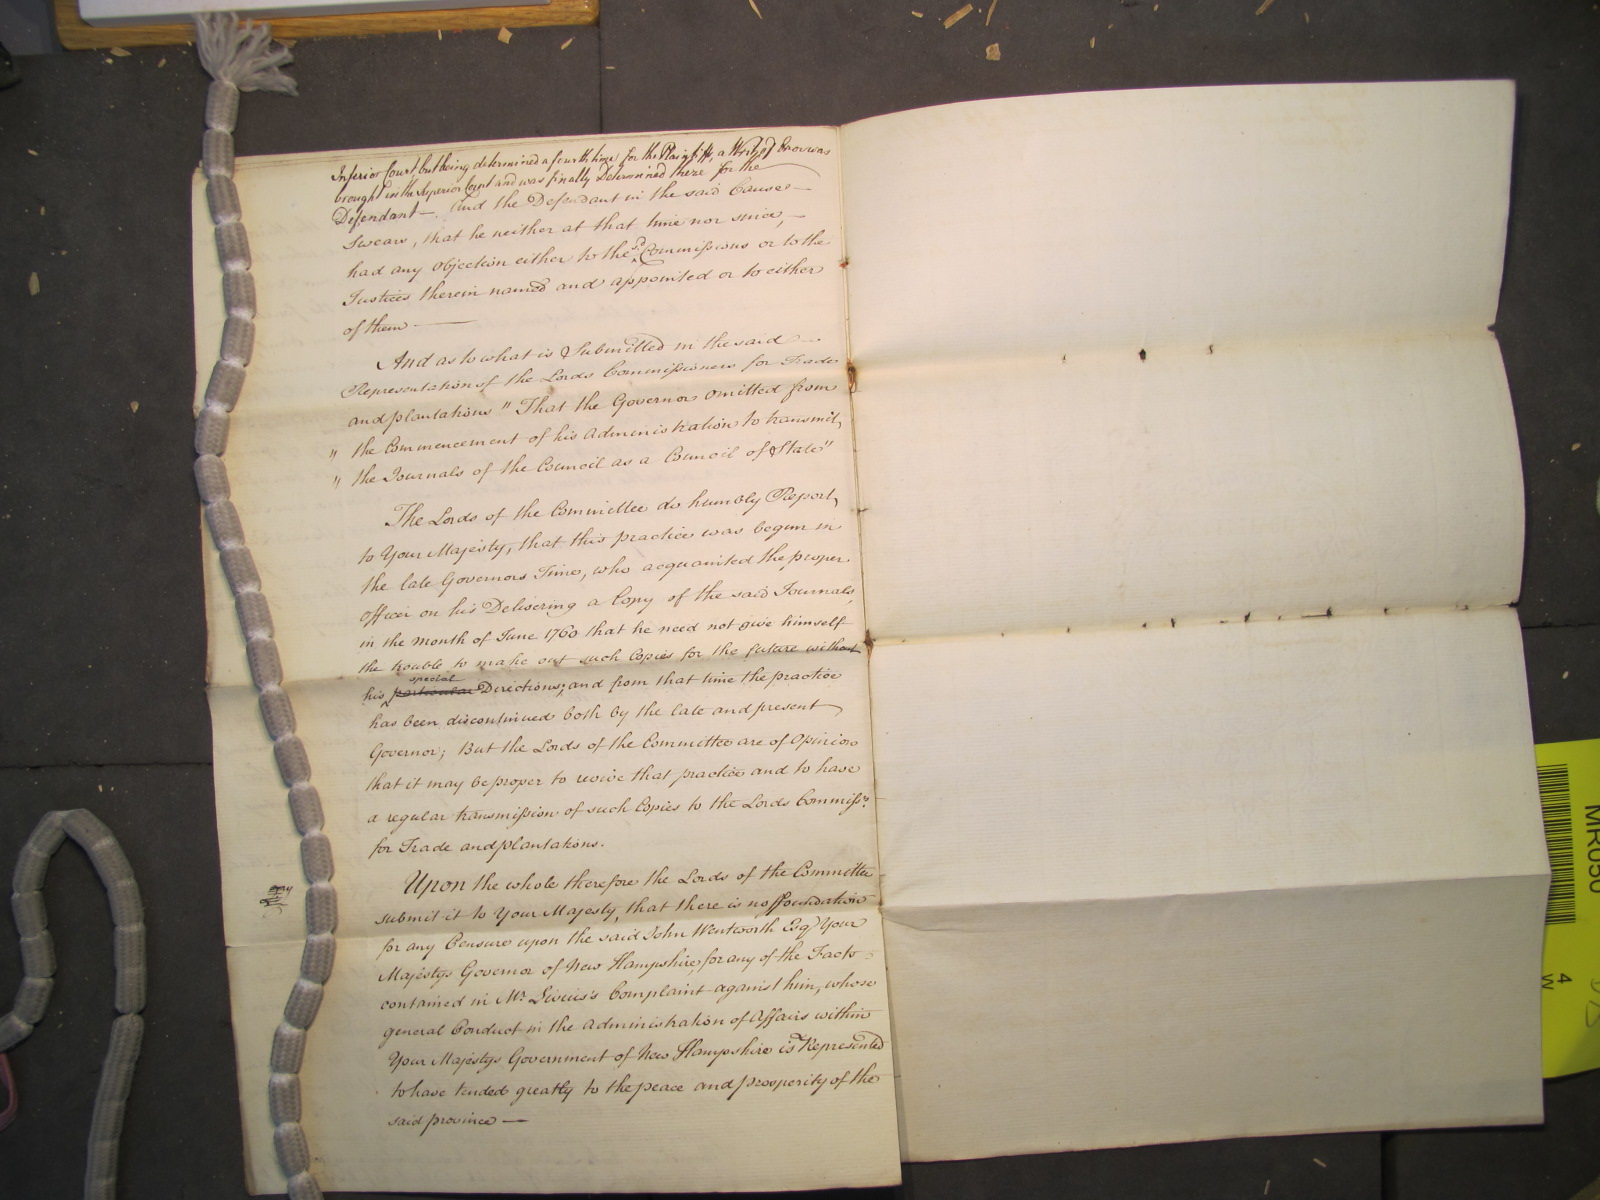 Inferior Court but being determined a fourth time for the Plaintiff, a Writ of Error was
brought in the Superior Court and was finally Determined there for the
Defendant —. And the Defendant in the said Causes —
Swears, that he neither at that time nor since, —
had any Objection either to the sd. Commissions or to the
Justices therein named and appointed or to either
of them —
And as to what is Submitted in the said —
Representation of the Lords Commissioners for Trade
and plantations " That the Governor omitted from
" the Commencement of his Administration to transmit,
" the Journals of the Council as a Council of State"
The Lords of the Committee do humbly Report,
to Your Majesty, that this practice was begun in
the late Governors Time, who acquainted the proper
Officer on his Delivering a Copy of the said Journals,
in the month of June 1760 that he need not give himself
the trouble to make out such Copies for the future without
special
his particular Directions; and from that time the practice
has been discontinued both by the late and present
Governor; But the Lords of the Committee are of Opinion
that it may be proper to revive that practice and to have
a regular transmission of such Copies to the Lords Commissrs.
for Trade and plantations.
Upon the whole therefore the Lords of the Committee
submit it to Your Majesty, that there is no foundation
for any Censure upon the said John Wentworth Esqr Your
Majestys Governor of New Hampshire, for any of the Facts
contained in Mr. Livius's Complaint against him, whose
general Conduct in the Administration of Affairs within
Your Majestys Government of New Hampshire is Represented
to have tended greatly to the peace and prosperity of the
said province —
MR050
4
W